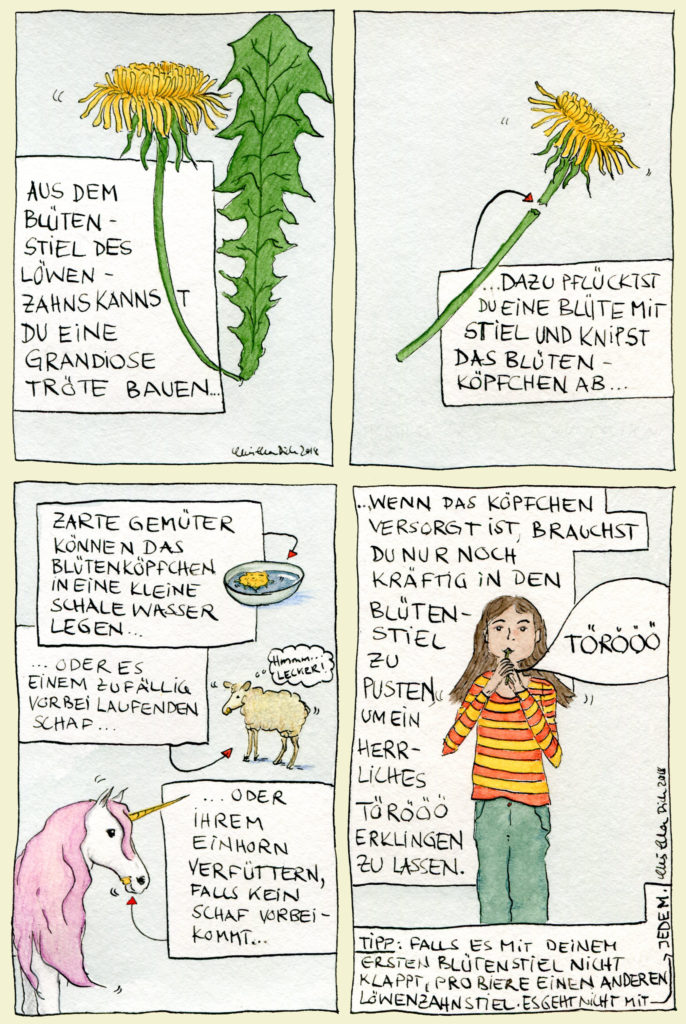 AUS DEM
BLÜTEN-
STIEL DES
LÖWEN-
ZAHNS KANNST
DU EINE
GRANDIOSE
TRÖTE BAUEN...
2018
...DAZU PFLÜCKTST
DU EINE BLÜTE MIT
STIEL UND KNIPST
DAS BLÜTEN-
KÖPFCHEN AB...
ZARTE GEMÜTER
KÖNNEN DAS
BLÜTENKÖPFCHEN
IN EINE KLEINE
SCHALE WASSER
LEGEN...
...ODER ES
EINEM ZUFÄLLIG
VORBEI LAUFENDEN
SCHAF...
HMMM...
LECKER!
...ODER
IHREM
EINHORN
VERFÜTTERN,
FALLS KEIN
SCHAF VORBEI-
KOMMT...
...WENN DAS KÖPFCHEN
VERSORGT IST, BRAUCHST
DU NUR NOCH
KRÄFTIG IN DEN
BLÜTEN-
STIEL
ZU
PUSTEN,
UM EIN
HERR-
LICHES
TÖRÖÖÖ
ERKLINGEN
ZU LASSEN.
TÖRÖÖÖ
TIPP: FALLS ES MIT DEINEM
ERSTEN BLÜTENSTIEL NICHT
KLAPPT, PROBIERE EINEN ANDEREN
LÖWENZAHNSTIEL. ES GEHT NICHT MIT
JEDEM.
2018